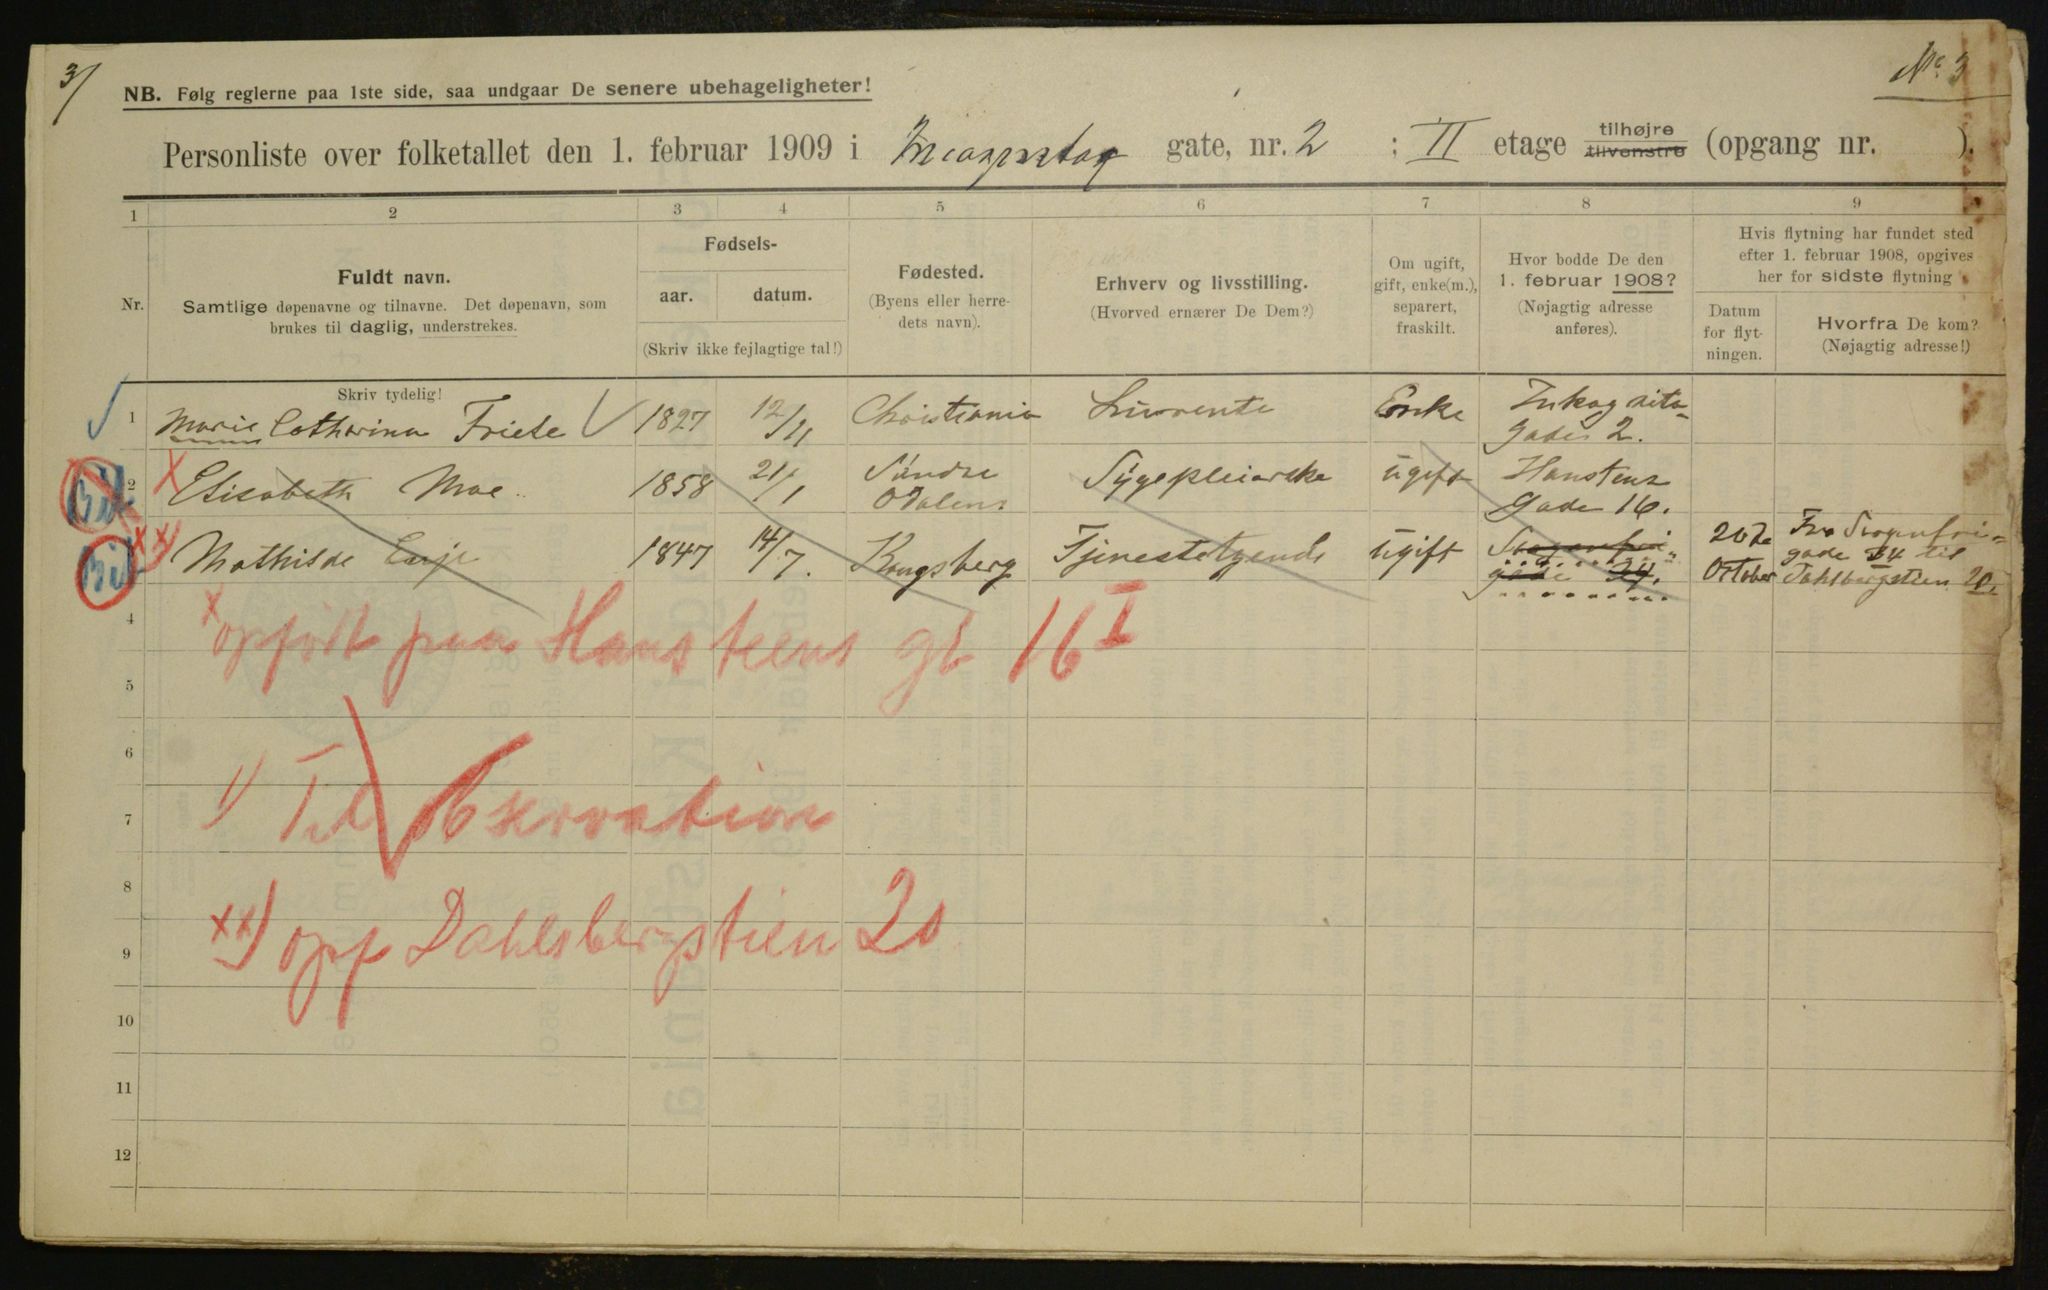 3/
No 3
NB. Følg reglerne paa 1ste side, saa undgaar De senere ubehageligheter!
Personliste over folketallet den 1. februar 1909 i gate, nr. 2 ; II etage tilhøjre tilvenstre (opgang nr. ).
1 2 3 4 5 6 7 8 9
Nr.
Fuldt navn.
Samtlige døpenavne og tilnavne. Det døpenavn, som
brukes til daglig, understrekes.
Fødsels-
aar. datum.
(Skriv ikke fejlagtige tal!)
Fødested.
(Byens eller herre-
dets navn).
Erhverv og livsstilling.
(Hvorved ernærer De Dem?)
Om ugift,
gift, enke(m.),
separert,
fraskilt.
Hvor bodde De den
1. februar 1908?
(Nøjagtig adresse
anføres).
Hvis flytning har fundet sted
efter 1. februar 1908, opgives
her for sidste flytning
Datum
for flyt-
ningen.
Hvorfra De kom?
(Nøjagtig adresse!)
Skriv tydelig!
1 Marie Catharina Friele 1827 12/11 Christiania Livrente Enke
Gade 2.
2 Elisabeth Moe 1858 21/1 Søndre Odalen Sygepleierske ugift Hanstens
Gade 16.
Mathilde 1847 14/7. Kongsberg Tjenestetyende ugift
gade 34.
20de
October
Fra
gade 34 til
Dahlsbergstien 20.
4
x opført paa Hansteens gt 16 I
5
6
7
1) Til Observation
8
9
xx) opf Dahlsbergstien 20
10
11
12